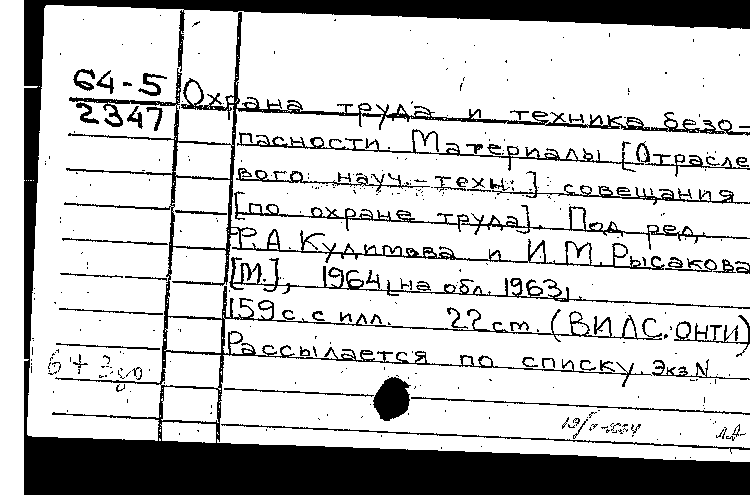 64-5
2347
Охрана труда и техника безо-
пасности. Материалы [Отрасле
вого науч.-техн.] совещания
[по охране труда]. Под ред.
Ф.А.Кудимова и И.М.Рысакова
[М.], 1964 [на обл. 1963].
159с.с илл. 22 ст. (ВИЛС.ОНТИ)
Рассылается по списку. Экз N